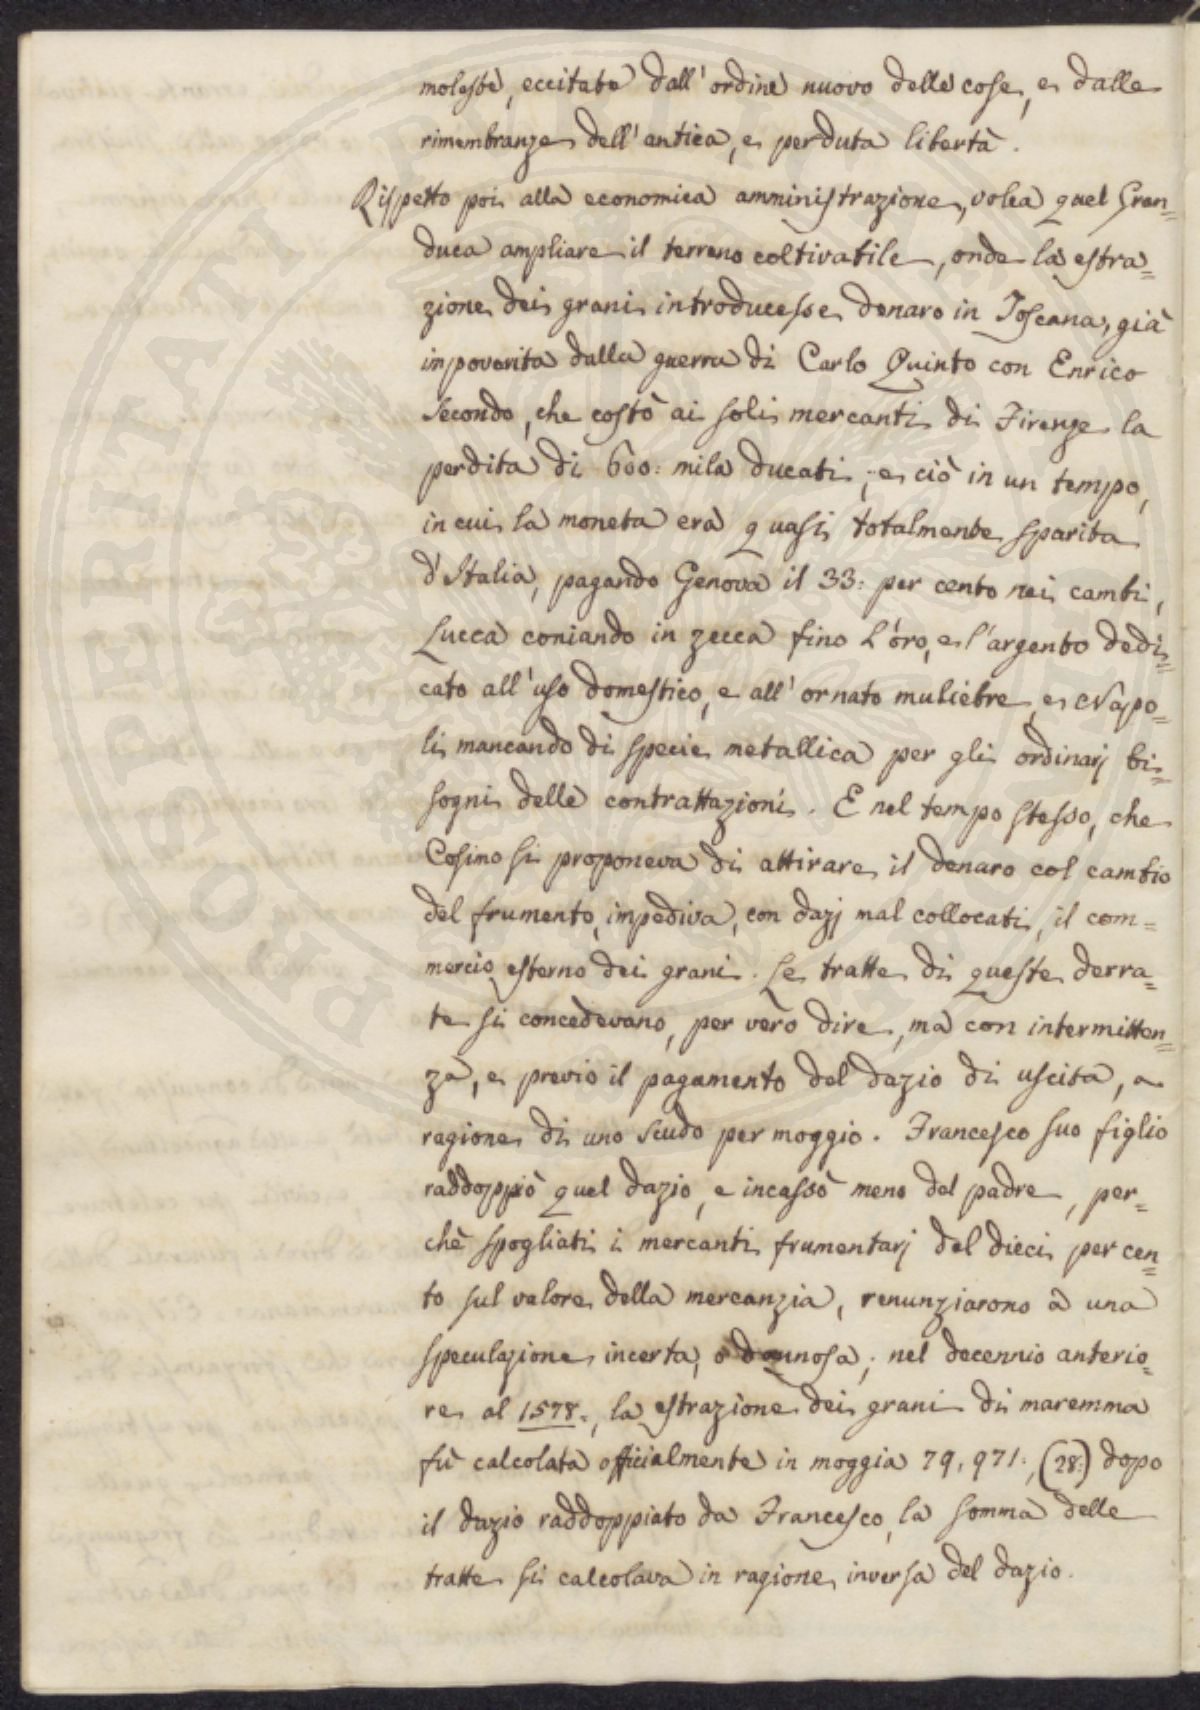 moleste, eccitate dall'ordine nuovo delle cose, e dalle
rimembranze dell'antica, e perduta libertà.
Rispetto poi alla economica amministrazione, volea quel Gran=
duca ampliare il terreno coltivatile, onde la estra=
zione dei grani introducesse denaro in Toscana, già
inpoverita dalla guerra di Carlo Quinto con Enrico
Secondo, che costò ai soli mercanti di Firenze la
perdita di 600: mila ducati; e ciò in un tempo,
in cui la moneta era quasi totalmente sparita
d'Italia, pagando Genova il 33: per cento nei cambi,
Lucca coniando in zecca fino l'oro, e l'argento dedi=
cato all'uso domestico, e all'ornato muliebre, e Napo=
li mancando di specie metallica per gli ordinarj bi=
sogni delle contrattazioni. E nel tempo stesso, che
Cosimo si proponeva di attirare il denaro col cambio
del frumento, impediva, con dazj mal collocati, il com=
mercio esterno dei grani. Le tratte di queste derra=
te si concedevano, per vero dire, ma con intermitten=
za, e previo il pagamento del dazio di uscita, a
ragione di uno scudo per moggio. Francesco suo figlio
raddoppiò quel dazio, e incassò meno del padre, per=
chè spogliati i mercanti frumentarj del dieci per cen=
to sul valore della mercanzia, renunziarono a una
speculazione incerta, o dannosa; nel decennio anterio=
re al 1578:, la estrazione dei grani di maremma
fù calcolata officialmente in moggia 79,971:, (28:) dopo
il dazio raddoppiato da Francesco, la somma delle
tratte si calcolava in ragione inversa del dazio.
PROSPERITATI PUBLICAE AUGENDAE